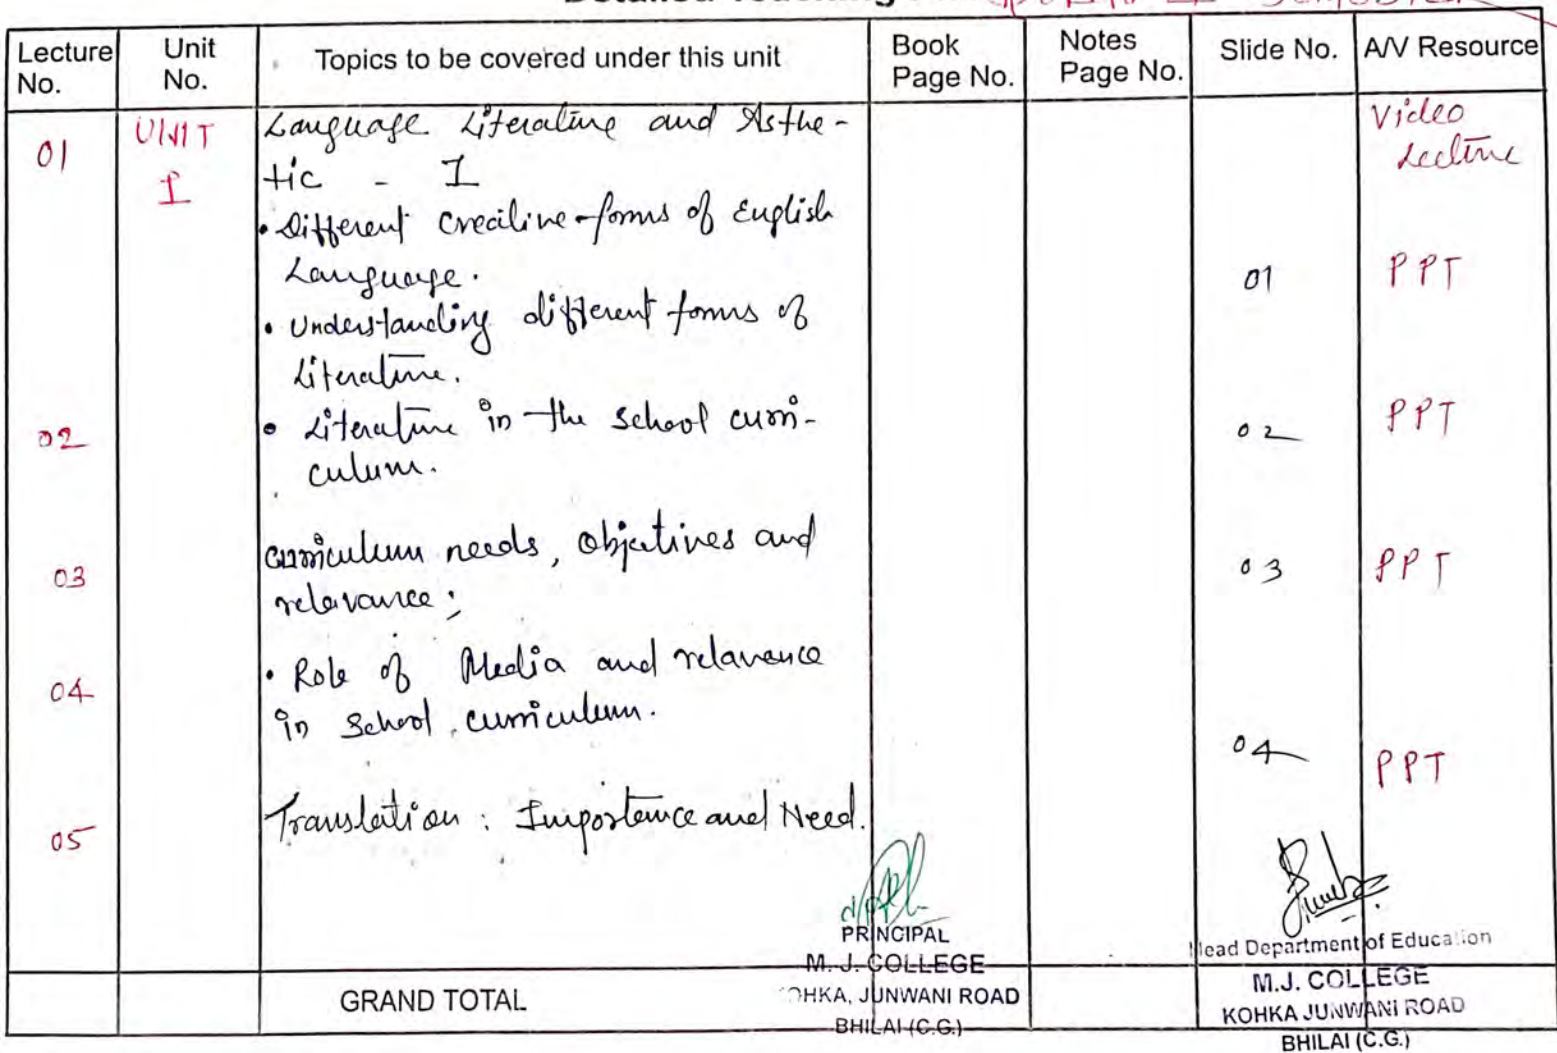 Detailed Teaching
Semester
Lecture No. Unit No. Topics to be covered under this unit Book Page No. Notes Page No. Slide No. A/V Resource
01 UNIT I Language Literature and Asthe-
tic - I
Video Lecture
• Different Creative forms of English
Language.
01 PPT
• Understanding different forms of
Literature.
02 • Literature in the school curri-
culum.
02 PPT
03 Curriculum needs, objectives and
relavance;
03 PPT
04 • Role of Media and relavance
in School curriculum.
04 PPT
05 Translation : Importance and Need.
PRINCIPAL
M. J. COLLEGE
OHKA, JUNWANI ROAD
BHILAI (C.G.)
Head Department of Education
M.J. COLLEGE
KOHKA JUNWANI ROAD
BHILAI (C.G.)
GRAND TOTAL